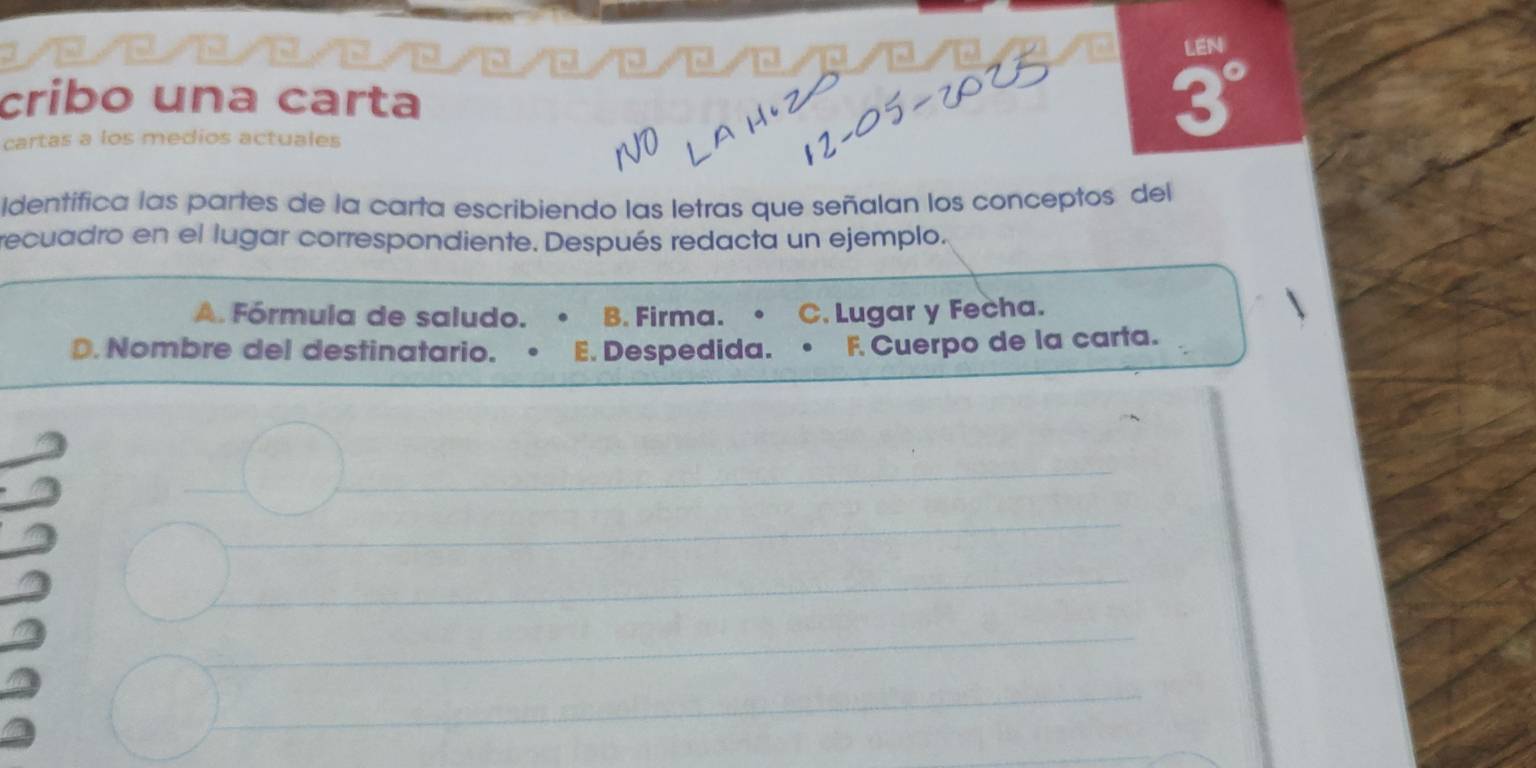 LEN
3°
cribo una carta
cartas a los medios actuales
NO LA HIZO
12-05-2025
Identifica las partes de la carta escribiendo las letras que señalan los conceptos del
recuadro en el lugar correspondiente. Después redacta un ejemplo.
A. Fórmula de saludo. • B. Firma. • C. Lugar y Fecha.
D. Nombre del destinatario. • E. Despedida. • F. Cuerpo de la carta.